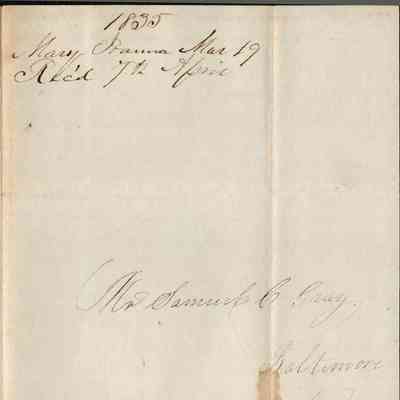 1835
Mary Hanna Mar 19
Rec'd 7th April
Mr Samuel C Gray.
Baltimore